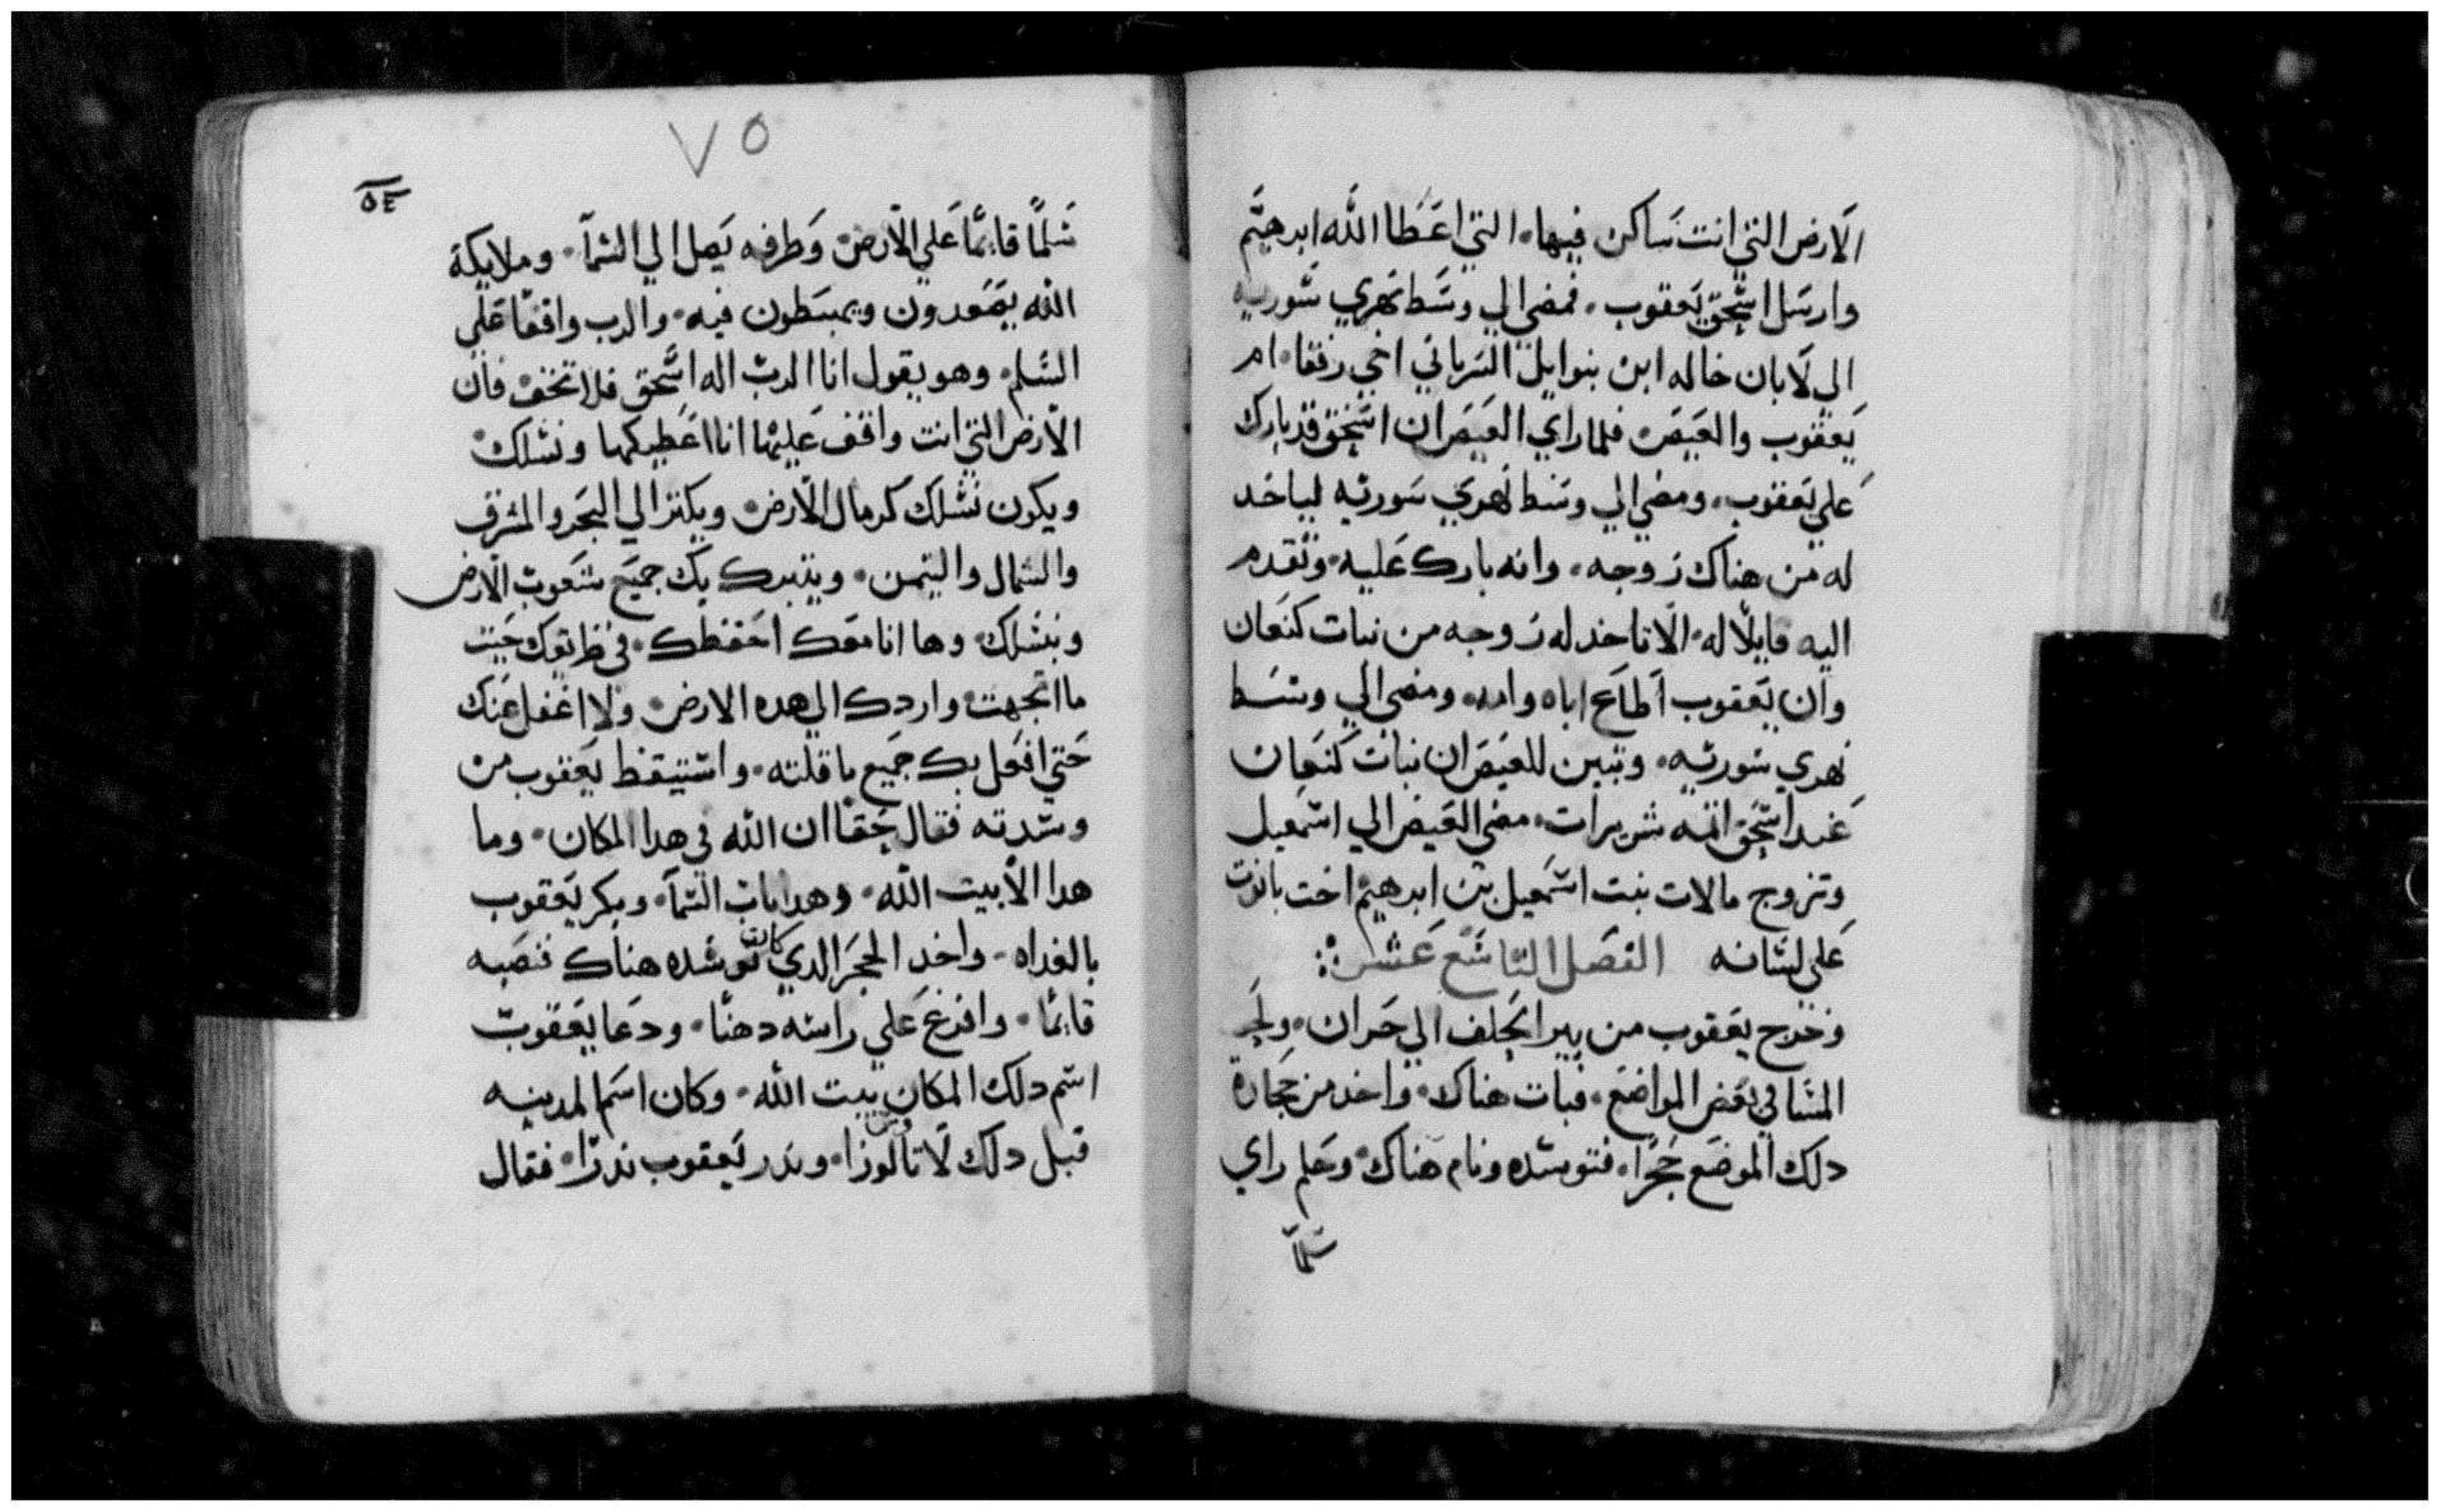 الارض التي انت ساكن فيها، التي اعطا الله ابرهيم
وارسل اسحق يعقوب، فمضي الي وسط نهري سورية
الي لابان خاله ابن بنوايل السرياني اخي رفقا، ام
يعقوب والعيص، فلما راي العيص ان اسحق قد بارك
علي يعقوب، ومضي الي وسط نهري سوريه لياخد
له من هناك زوجه، وانه بارك عليه، وتقدم
اليه قايلًا له، الا تاخد له زوجه من بنات كنعان
وان يعقوب اطاع اباه وامه، ومضي الي وسط
نهري سوريه، وتبين للعيص ان بنات كنعان
عند اسحق انه شريرات، مضي العيص الي اسمعيل
وتزوج مالات بنت اسمعيل بن ابرهيم اخت بانوت
علي لسانه الفصل التاسع عشر
وخرج يعقوب من بير الحلف الي حران، ولحد
المسا في بعض المواضع، فبات هناك، واخد من حجارة
دلك الموضع حجرًا، فتوسده ونام هناك، وحلم راي
سلمًا
٧٥
٥٤
سلمًا قايمًا علي الارض، وطرفه يصل الي السمآ، وملايكة
الله يصعدون ويهبطون فيه، والرب واقفًا علي
السلم، وهو يقول انا الرب اله اسحق فلا تخف، فان
الارض التي انت واقف عليها انا اعطيكها ونسلك
ويكون نسلك كرمال الارض، ويكثر الي البحر والمشرق
والشمال واليمن، ويتبرك بك جميع شعوب الارض
وبنسلك، وها انا معك احفظك، في طريقك حيث
ما اتجهت، واردك الي هده الارض، ولا اغفل عنك
حتي افعل بك جميع ما قلته، واستيقظ يعقوب من
وسدته فقال حقًا ان الله في هدا المكان، وما
هدا الا بيت الله، وهدا باب السمآ، وبكر يعقوب
بالغداه، واخد الحجر الدي كان توسده هناك فنصبه
قايمًا، وافرغ علي راسه دهنًا، ودعا يعقوب
اسم دلك المكان بيت الله، وكان اسم المدينه
قبل دلك لوزا، وندر يعقوب ندرًا، فقال